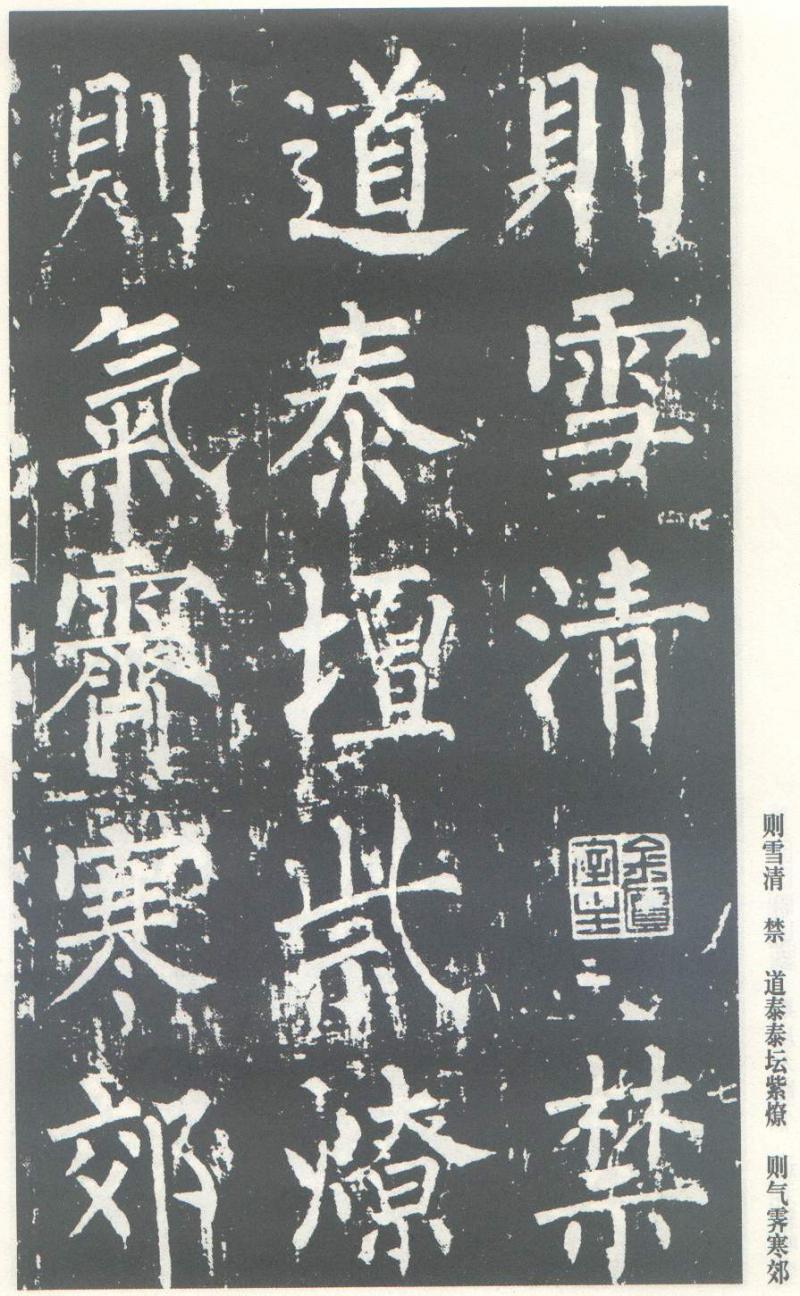 則雪清禁
道泰壇祡燎
則氣霽寒郊
则雪清 禁 道泰泰坛紫燎 则气霁寒郊